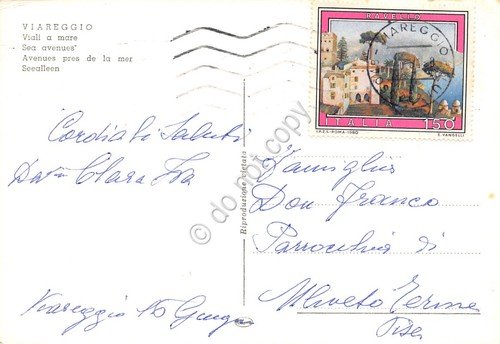 VIAREGGIO
Viali a mare
Sea avenues'
Avenues pres de la mer
Seealleen
Cordiali Saluti
Clara
Viareggio 15
Riproduzione vietata
do not copy
RAVELLO
VIAREGGIO
ITALIA 150
I.P.Z.S.-ROMA-1980
E. VANGELLI
Famiglia
Don Franco
Parrocchia di
Uliveto Terme
Pisa